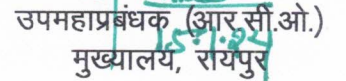 उपमहाप्रबंधक (आर.सी.ओ.)
मुख्यालय, रायपुर